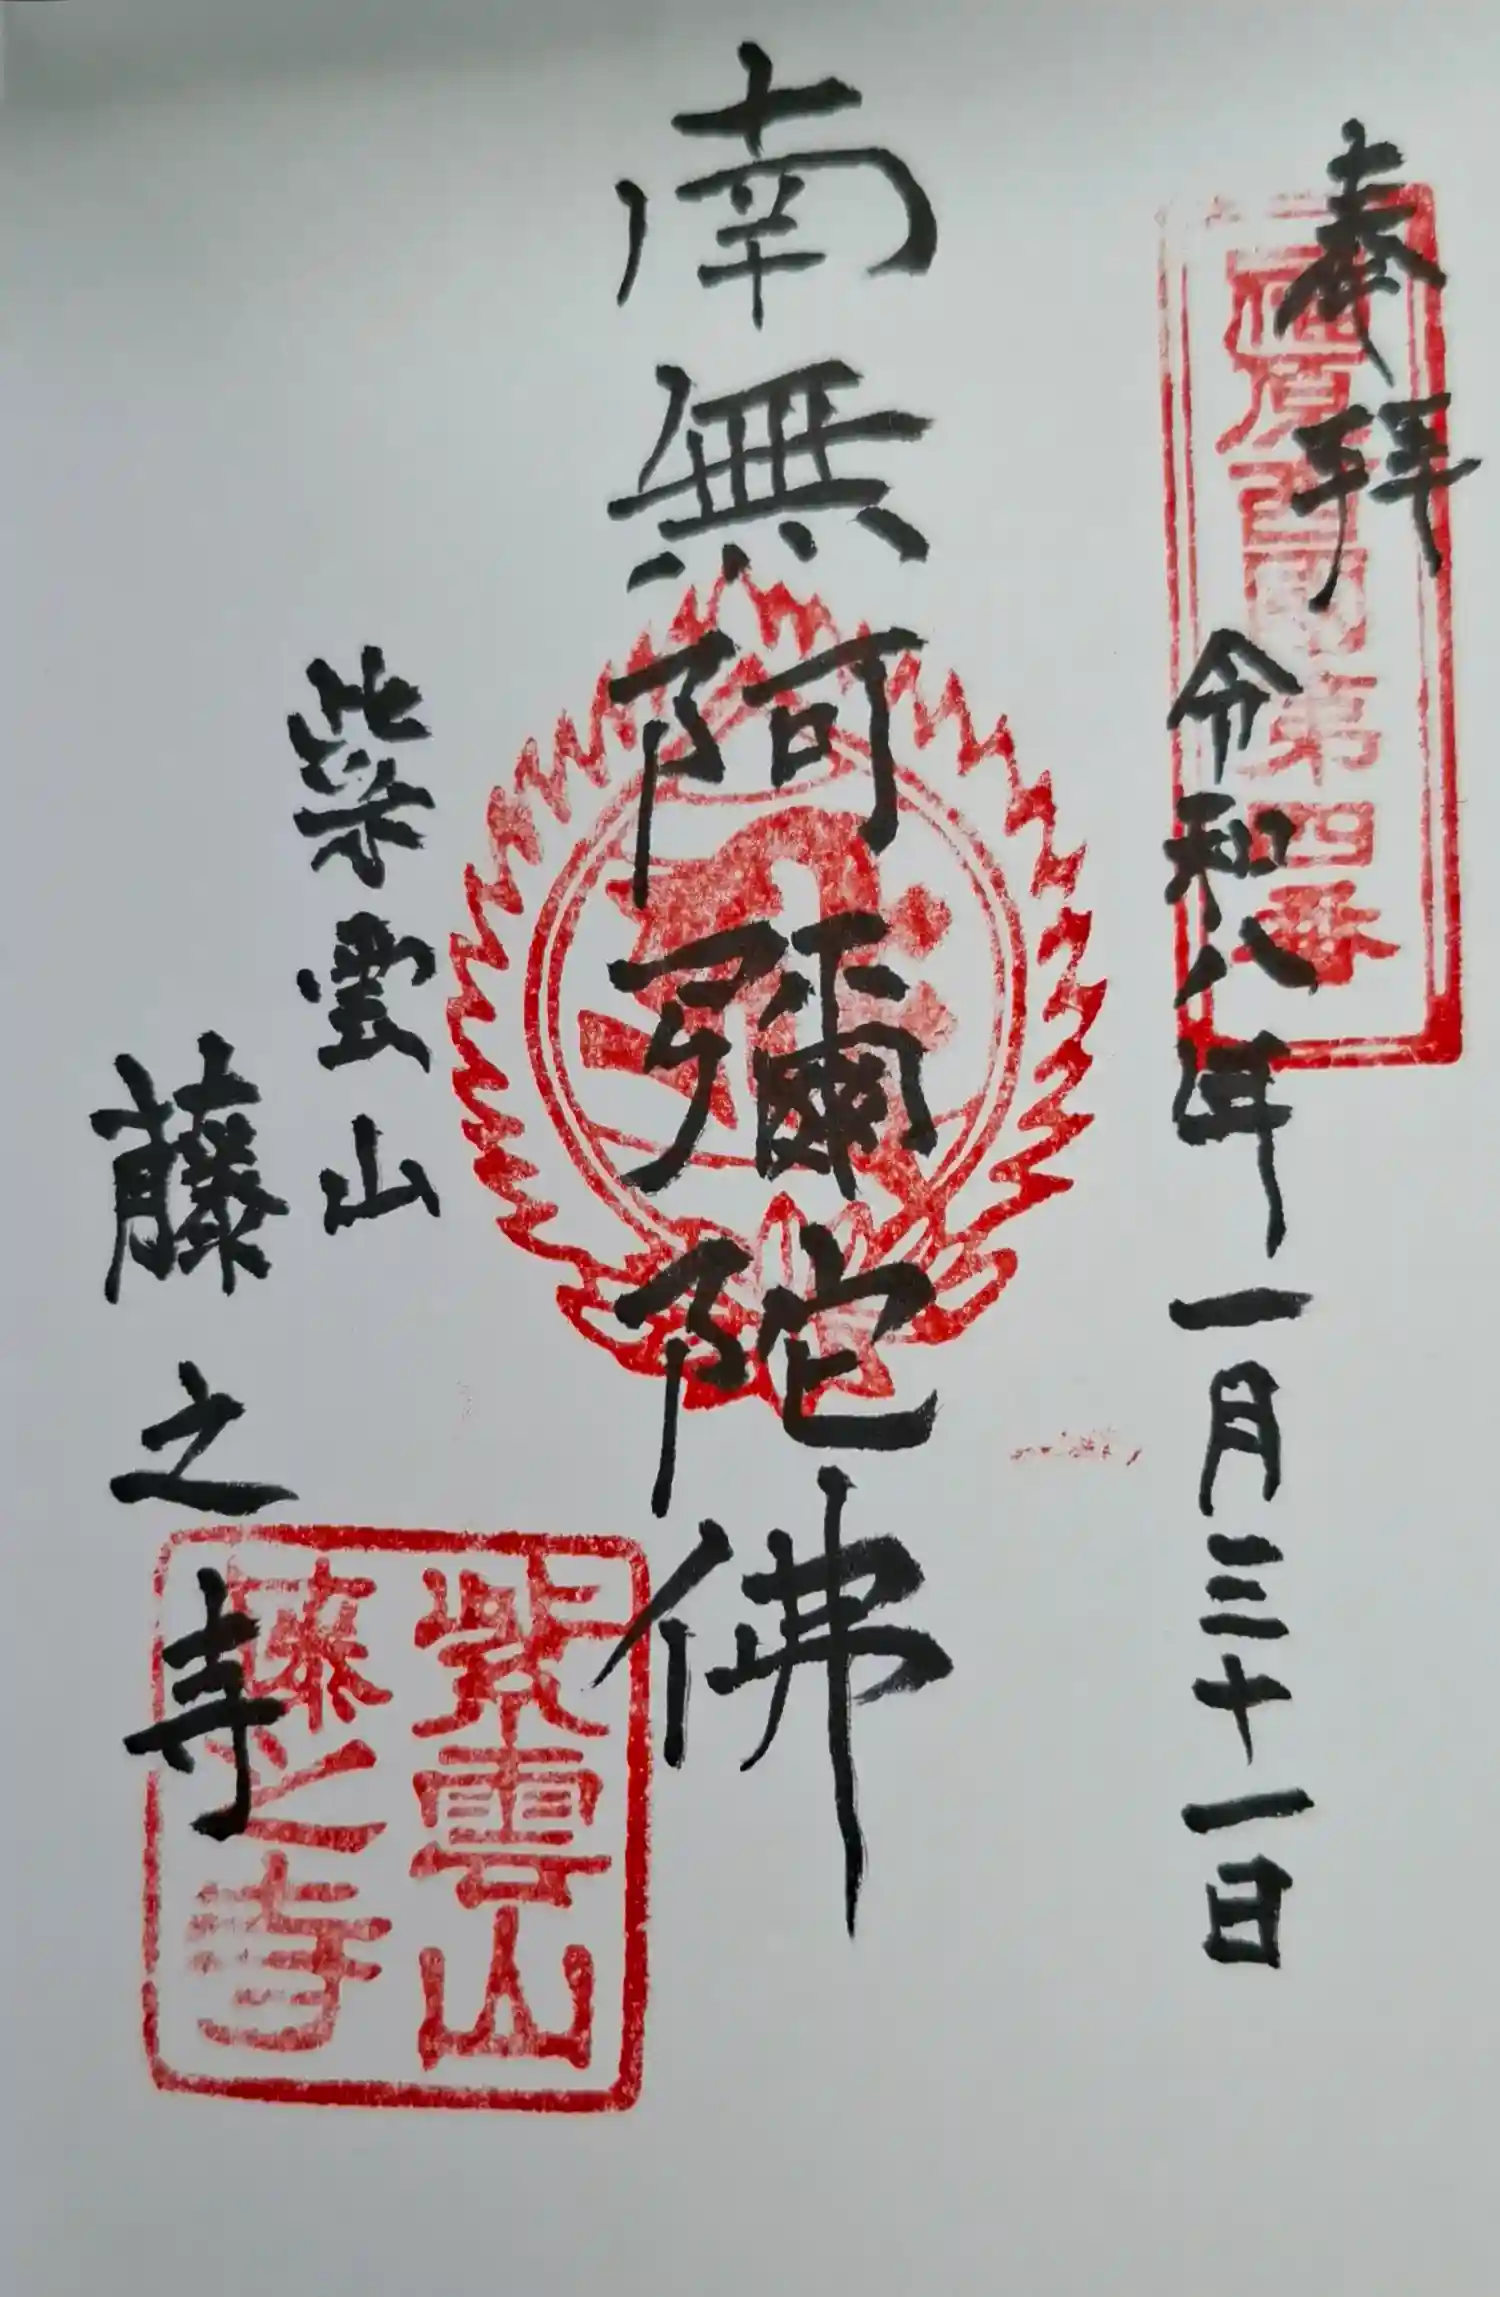 奉拝
原西國第四番
令和八年一月三十一日
南無阿彌陀佛
紫雲山
藤之寺
紫雲山
藤之寺